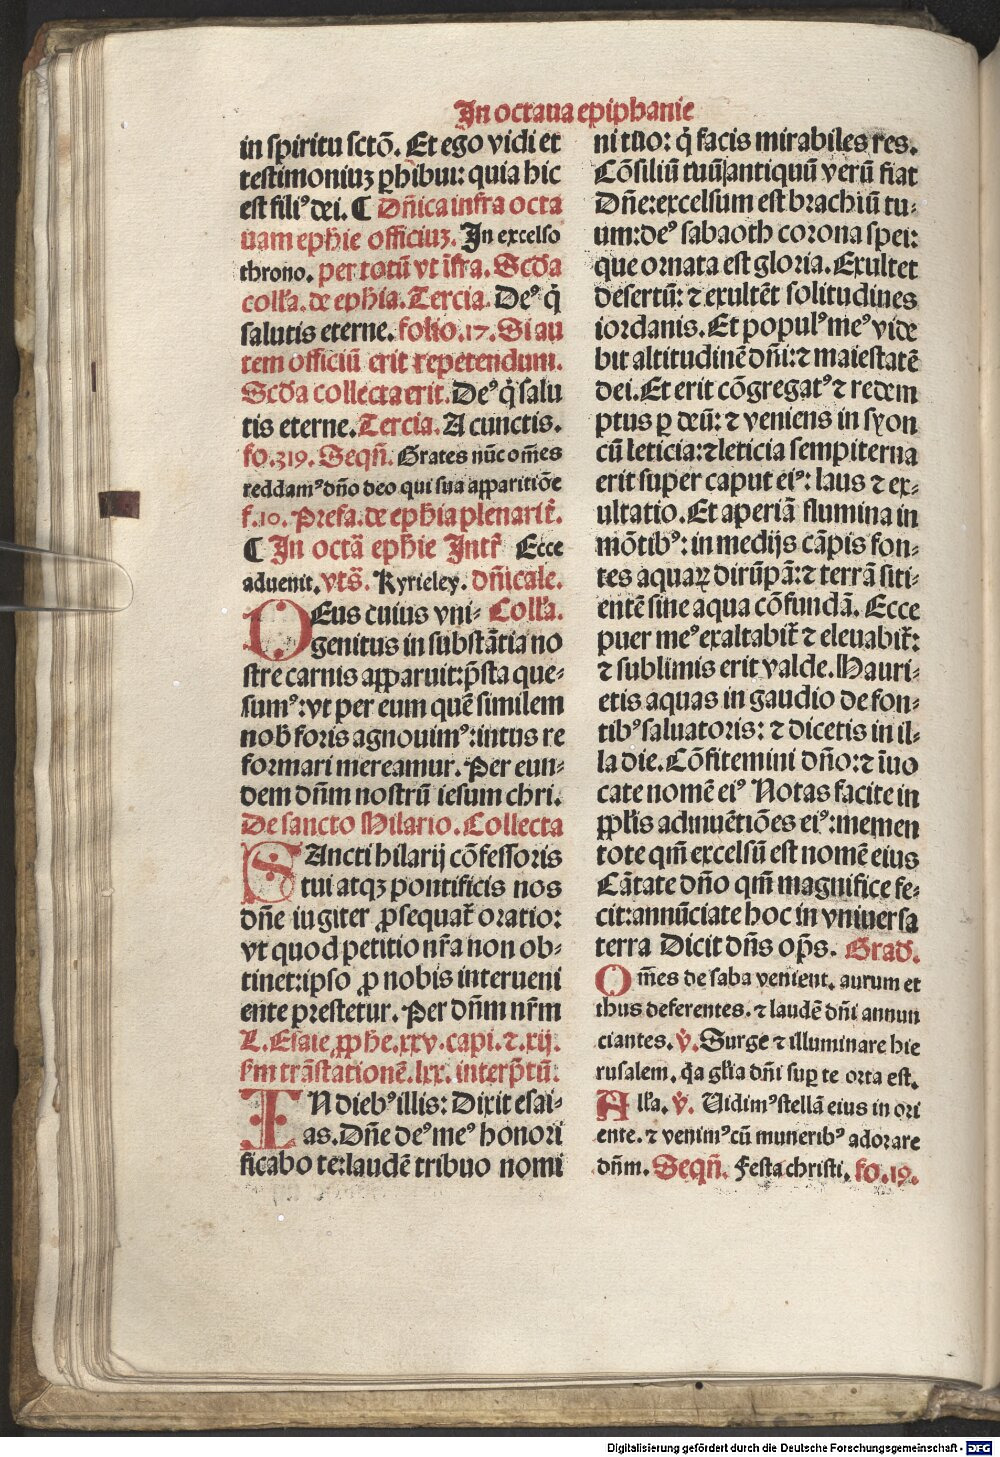 In octaua epiphanie
in spiritu sctō. Et ego vidi et
testimoniuȝ ꝑhibui: quia hic
est fili⁹ dei. ¶ Dn̄ica infra octa
uam ephie officiuȝ. In excelso
throno. per totū vt īfra. Scd̄a
coll̄a. de eph̄ia. Tercia. De⁹ q̇
salutis eterne. folio .17. Si au
tem officiū erit repetendum.
Scd̄a collecta erit. De⁹ q̇ salu
tis eterne. Tercia. A cunctis.
fo.319. Seqn̄. Grates nūc om̄es
reddam⁹ dn̄o deo qui sua apparitiōe
f.10. Prefa. de eph̄ia plenarit̄.
¶ In octā eph̄ie Intr̄ Ecce
aduenit. vts̄. Kyrieley. dn̄icale.
DEus cuius vni⸗ Coll̄a.
genitus in substātia no
stre carnis apparuit: p̄sta que⸗
sum⁹: vt per eum quē similem
nob̄ foris agnouim⁹: intus re
formari mereamur. Per eun⸗
dem dn̄m nostrū iesum chri.
De sancto Hilario. Collecta
SAncti hilarij cōfessoris
tui atqȝ pontificis nos
dn̄e iugiter ꝓsequat̄ oratio:
vt quod petitio nr̄a non ob⸗
tinet: ipso ꝓ nobis interueni
ente prestetur. Per dn̄m nr̄m
L. Esaie ꝓphe. xxv. capi. ⁊. xij.
sm̄ trāstationē. lxx. interp̄tū.
IN dieb⁹ illis: Dixit esai⸗
as. Dn̄e de⁹ me⁹ honori
ficabo te: laudē tribuo nomi
ni tuo: q̇ facis mirabiles res.
Cōsiliū tuū antiquū verū fiat
Dn̄e: excelsum est brachiū tu⸗
um: de⁹ sabaoth corona spei:
que ornata est gloria. Exultet
desertū: ⁊ exultēt solitudines
iordanis. Et popul⁹ me⁹ vide
bit altitudinē dn̄i: ⁊ maiestatē
dei. Et erit cōgregat⁹ ⁊ redem
ptus ꝑ deū: ⁊ veniens in syon
cū leticia: ⁊ leticia sempiterna
erit super caput ei⁹: laus ⁊ ex⸗
ultatio. Et aperiā flumina in
mōtib⁹: in medijs cāpis fon⸗
tes aquaꝝ dirūpā: ⁊ terrā siti⸗
entē sine aqua cōfundā. Ecce
puer me⁹ exaltabit̄ ⁊ eleuabit̄:
⁊ sublimis erit valde. Hauri⸗
etis aquas in gaudio de fon⸗
tib⁹ saluatoris: ⁊ dicetis in il⸗
la die. Cōfitemini dn̄o: ⁊ īuo
cate nomē ei⁹ Notas facite in
ppl̄is adinuētiōes ei⁹: memen
tote qm̄ excelsū est nomē eius
Cātate dn̄o qm̄ magnifice fe⸗
cit: annūciate hoc in vniuersa
terra Dicit dn̄s op̄s. Grad̄.
Om̄es de saba venient. aurum et
thus deferentes. ⁊ laudē dn̄i annun
ciantes. v̇. Surge ⁊ illuminare hie
rusalem. q̄a gl̄ia dn̄i suꝑ te orta est.
All̄a. v̇. Vidim⁹ stellā eius in ori
ente. ⁊ venim⁹ cū munerib⁹ adorare
dn̄m. Seqn̄. Festa christi. fo.19.
Digitalisierung gefördert durch die Deutsche Forschungsgemeinschaft - DFG